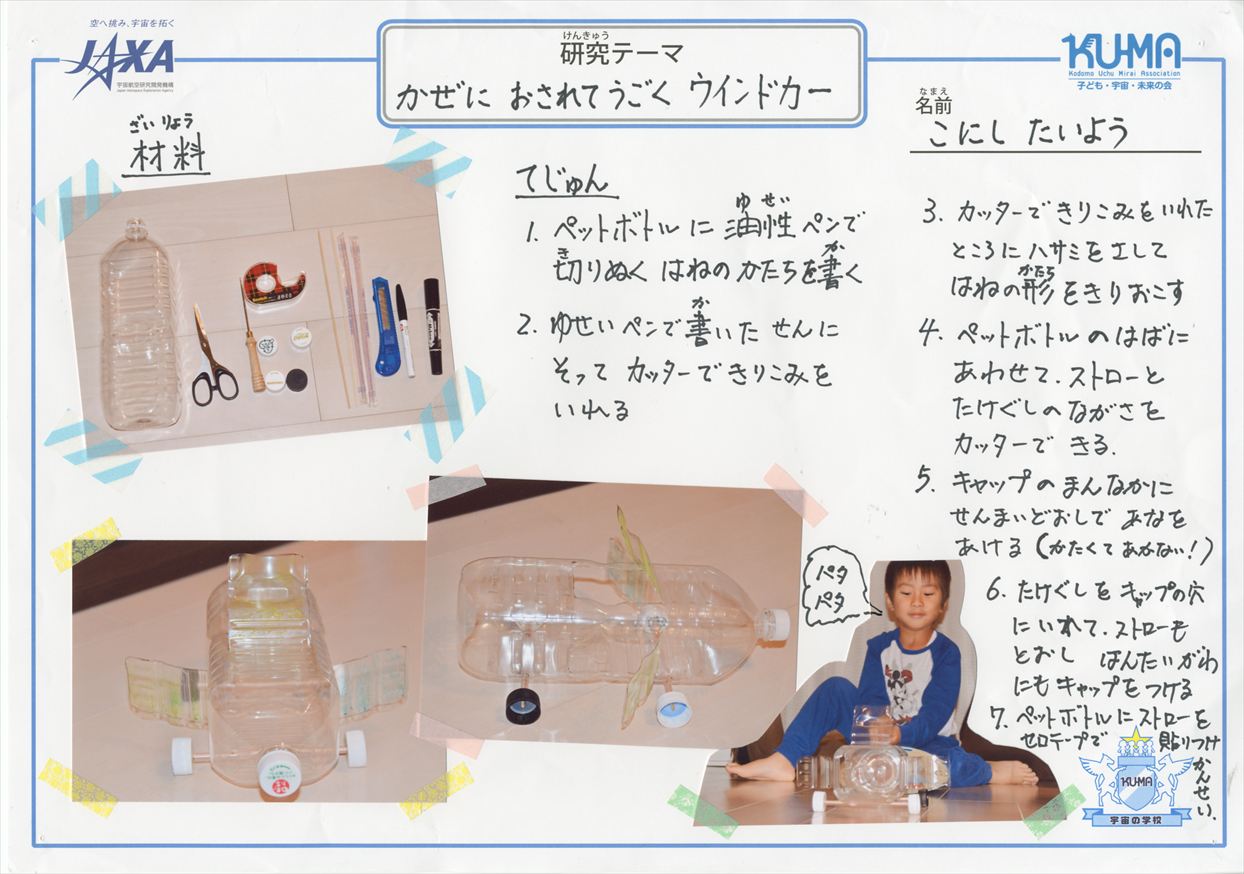 空へ挑み、宇宙を拓く
JAXA
宇宙航空研究開発機構
Japan Aerospace Exploration Agency
けんきゅう
研究テーマ
かぜに おされてうごく ウインドカー
KU-MA
Kodomo Uchu Mirai Association
子ども・宇宙・未来の会
なまえ
名前
こにし たいよう
ざいりょう
材料
てじゅん
1. ペットボトルに油性ペンで
ゆせい
切りぬく はねのかたちを書く
き か
2. ゆせいペンで書いた せんに
か
そって カッターできりこみを
いれる
3. カッターできりこみをいれた
ところにハサミを工して
はねの形をきりおこす
かたち
4. ペットボトルのはばに
あわせて、ストローと
たけぐしのながさを
カッターで きる.
5. キャップのまんなかに
せんまいどおしで あなを
あける (かたくてあかない!)
6. たけぐしをキャップの穴
にいれて、ストローを
とおし はんたいがわ
にもキャップをつける
7. ペットボトルにストローを
セロテープで 貼りつけ
かんせい.
パタ
パタ
KU-MA
宇宙の学校